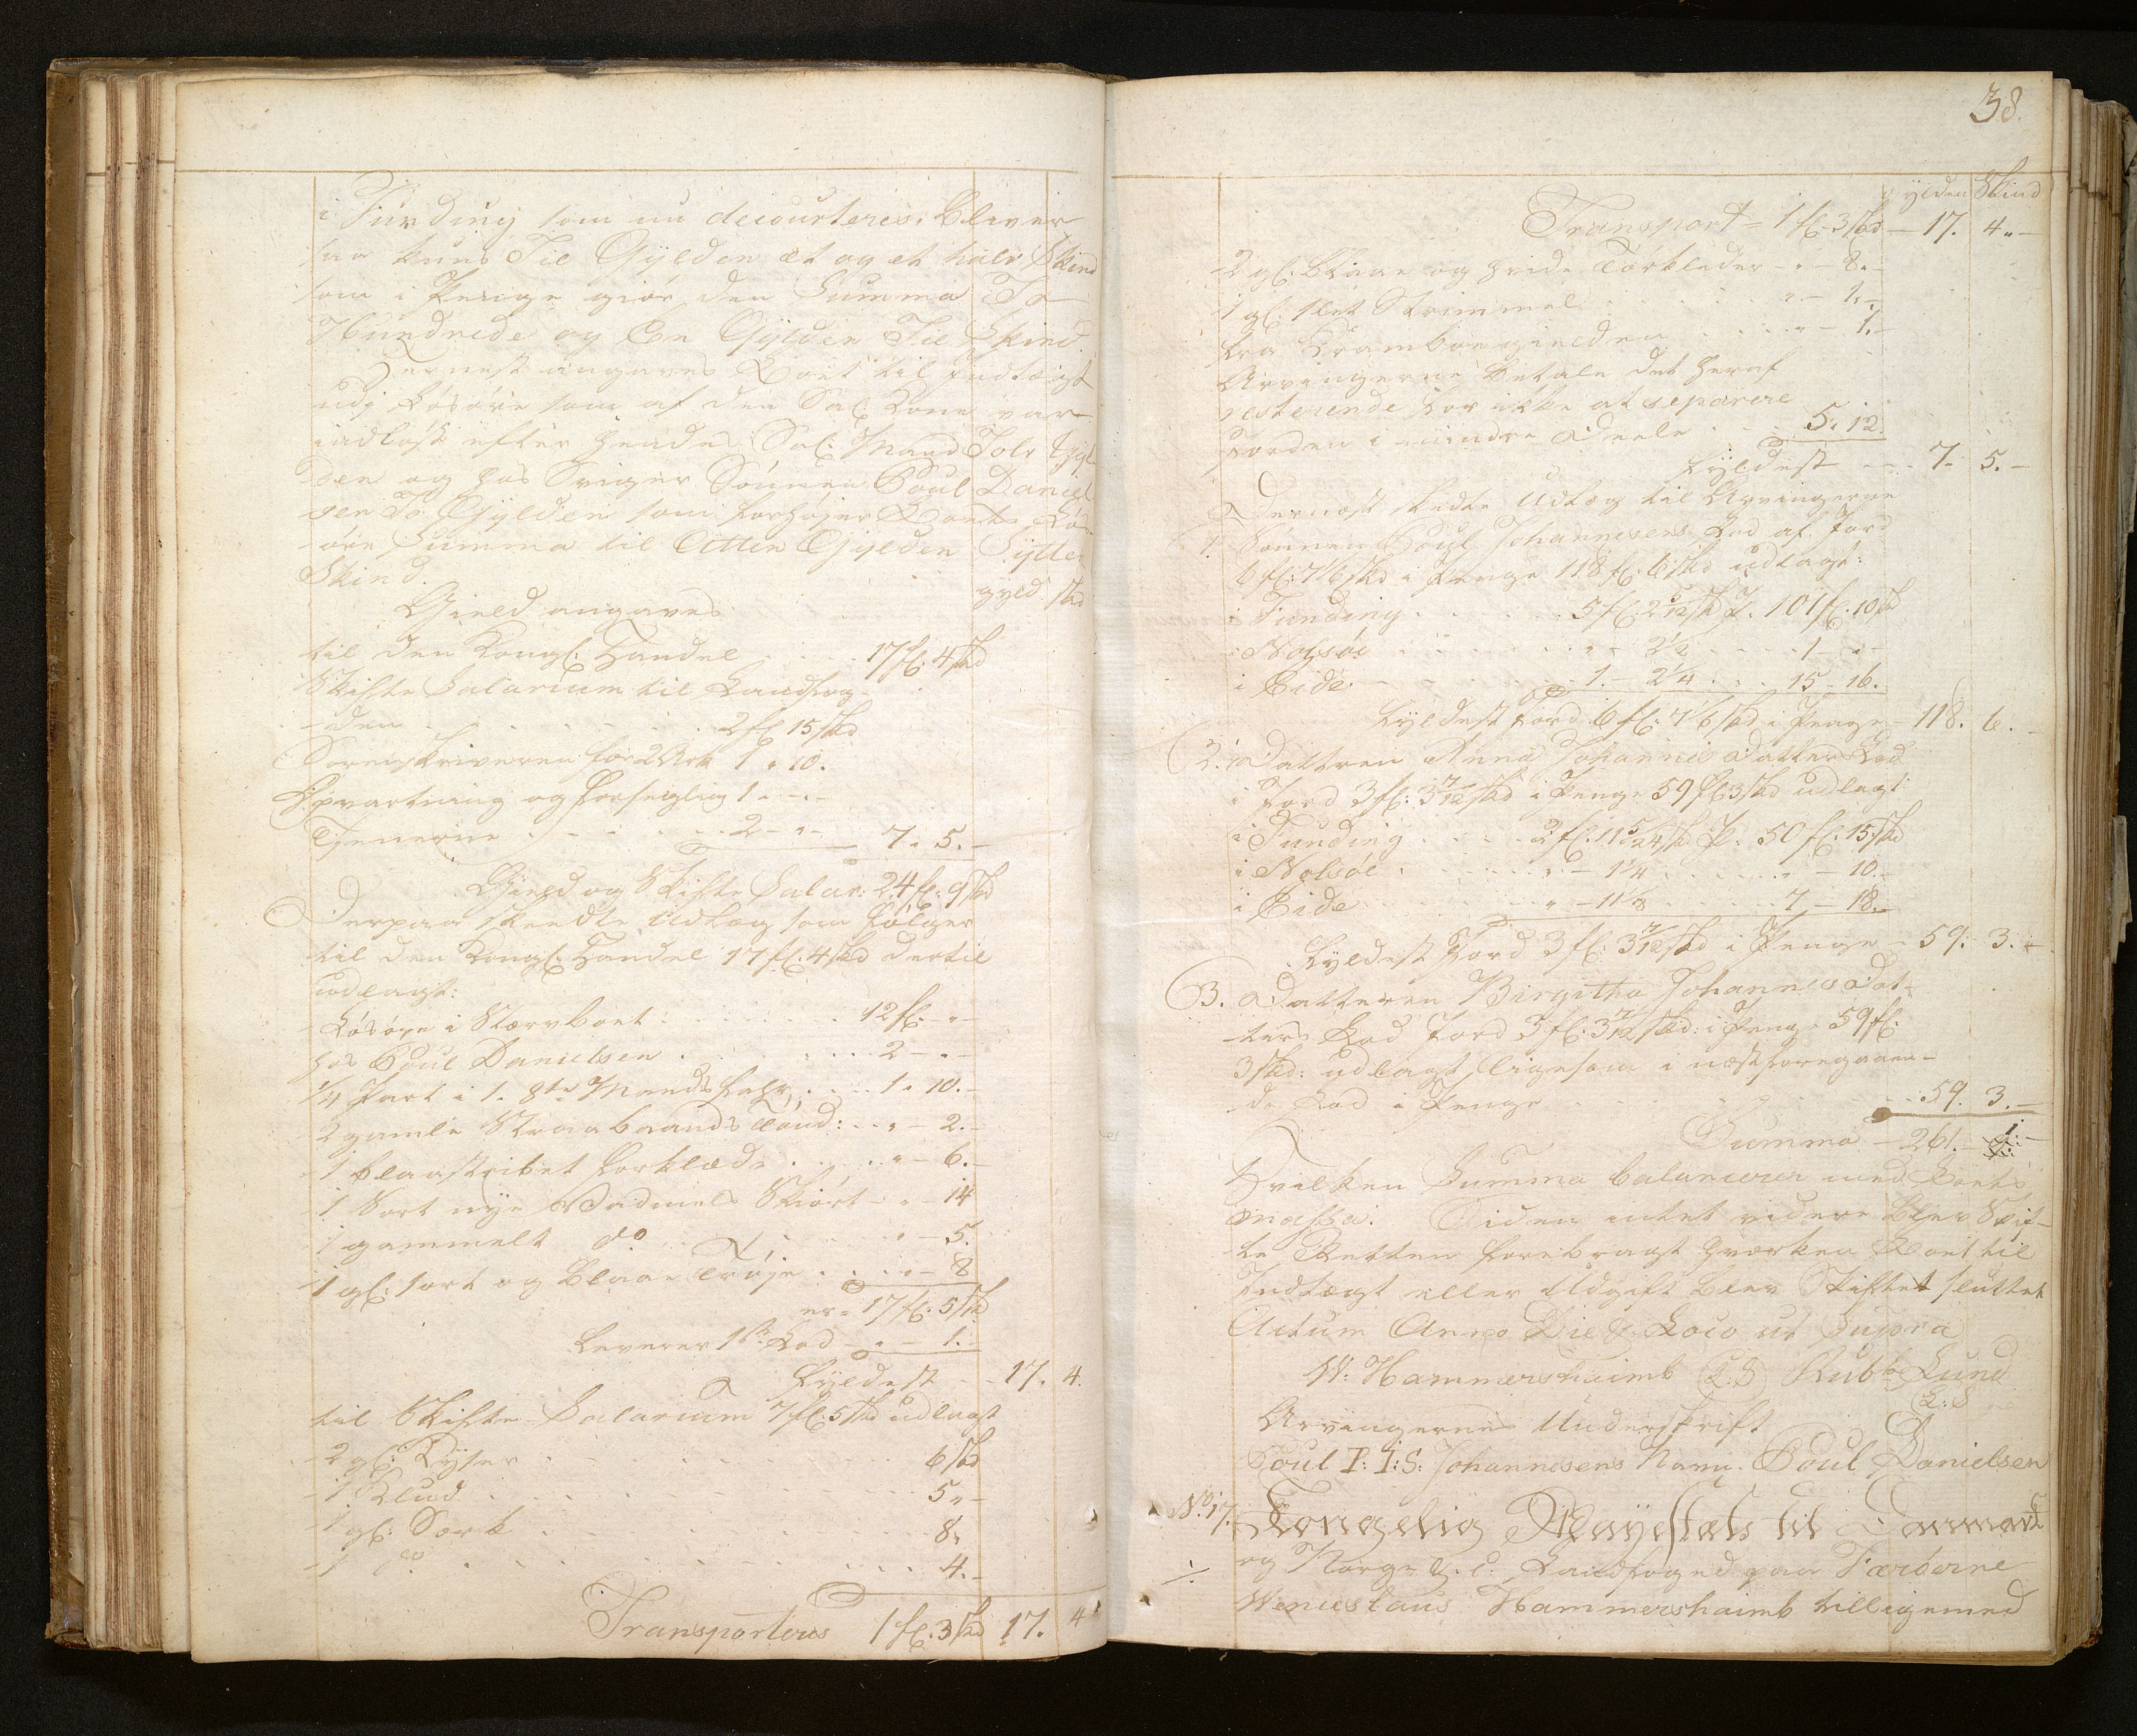 i Funding som nu decourteres: bliver
saa kuns Tie Gylden et og et halv Skind
som i Penge giør den Summa To
Hundrede og Een Gylden Tie Skind.
Dernest angaves Boet til Indtægt
udj Løsøre som af den Sal: Kone var
indløst efter hendes Sal: Mand Tolv Gyl
den og hos Sviger Sønnen Poul Daniel
sen To Gylden som forhøjer Boets Løs
øre Summa til Atten Gylden Sytten
Skind. gyld skd
Gield angaves
til den Kongl: Handel 17 fl: 4 skd
Skifte Salarium til Landfog-
den 2 fl 15 skd
Sorenskriveren for 2 Ark 1 " 10.
Opvartning og Forsegling 1 - " -
Tienerne 2 - " - 7. 5. -
Gield og Skifte Salar: 24 fl: 9 skd
Derpaa skeedte Udlæg som følger
til den Kongl: Handel 17 fl: 4 skd dertil
udlagt:
Løsøre i Stervboet 12 fl: - " -
hos Poul Danielsen 2 - " -
1/4 Part i 1. 8te Mands Fahr 1 " 10. -
2 gamle Straabaands Tønd: " - 2. -
1 blaastribet Forklæde " - 6. -
1 Sort nye Vadmels Skiørt " - 14
1 gammelt do " - 5.
1 gl: sort og blaae Trøje " - 8
er = 17 fl: 5 skd
Leverer 1ste Lod " - 1. -
Fyldest 17. 4.
til Skifte Salarium 7 fl: 5 skd udlagt
2 gl: Dyner 6 skd
1 Klud 5 " -
1 gl: Særk 8 "
1 do 4. -
Transporteres 1 fl: 3 skd 17. 4
38.
Gylden Skind
Transport = 1 fl: 3 skd - 17. 4 " -
2 gl: blaae og hvide Tørklæder " - 8. -
1 gl: slet Strimmel " - 1. -
fra " - 1. -
Arvingerne betale det heraf
resterende for ikke at separere
Jorden i mindre Deele 5. 12.
Fyldest 7. 5. -
Dernest skedte Udlæg til Arvingerne
1. Sønnen Poul Johannesens Lod af Jord
6 fl: 7 1/6 skd i Penge 118 fl: 6 skd udlagt:
i Funding 5 fl: 2 5/12 skd P. 101 fl: 10 skd
i Nolsøe " - 2 1/2 1 - " -
i Eide 1. - 2 1/4 15 - 16.
Fyldest Jord 6 fl: 7 1/6 skd i Penge - 118. 6. -
2. Dattren Anna Johannis Datters Lod
i Jord 3 fl: 3 7/12 skd i Penge 59 fl 3 skd udlagt
i Funding 2 fl: 11 5/24 skd P. 50 fl: 15 skd
i Nolsøe " - 1 1/4 " - 10. -
i Eide " - 11 1/8 7 - 18. -
Fyldest Jord 3 fl: 3 7/12 skd i Penge - 59. 3. -
3. Datteren Birgitha Johannes Dat-
ters Lod Jord 3 fl: 3 7/12 skd: i Penge 59 fl:
3 skd: udlagt ligesom i næstforegaaen-
de Lod i Penge 59. 3. -
Summa - 261. - 1: -
Hvilken Summa balancerer med Boets
massa. Siden intet videre blev Skif-
te Retten forebragt hverken Boet til
Indtægt eller Udgift blev Skiftet sluttet
Actum Anno Die & Loco ut Supra
W: Hammershaimb (L:S) Lund
L:S
Arvingernes Underskrift
Poul P: I: S: Johannesens Navn. Poul Danielsen
No 17. Kongelig Mayestæts til Danmark
og Norge &.c: Landfoged paa Færöerne
Wenceslaus Hammershaimb tilligemed